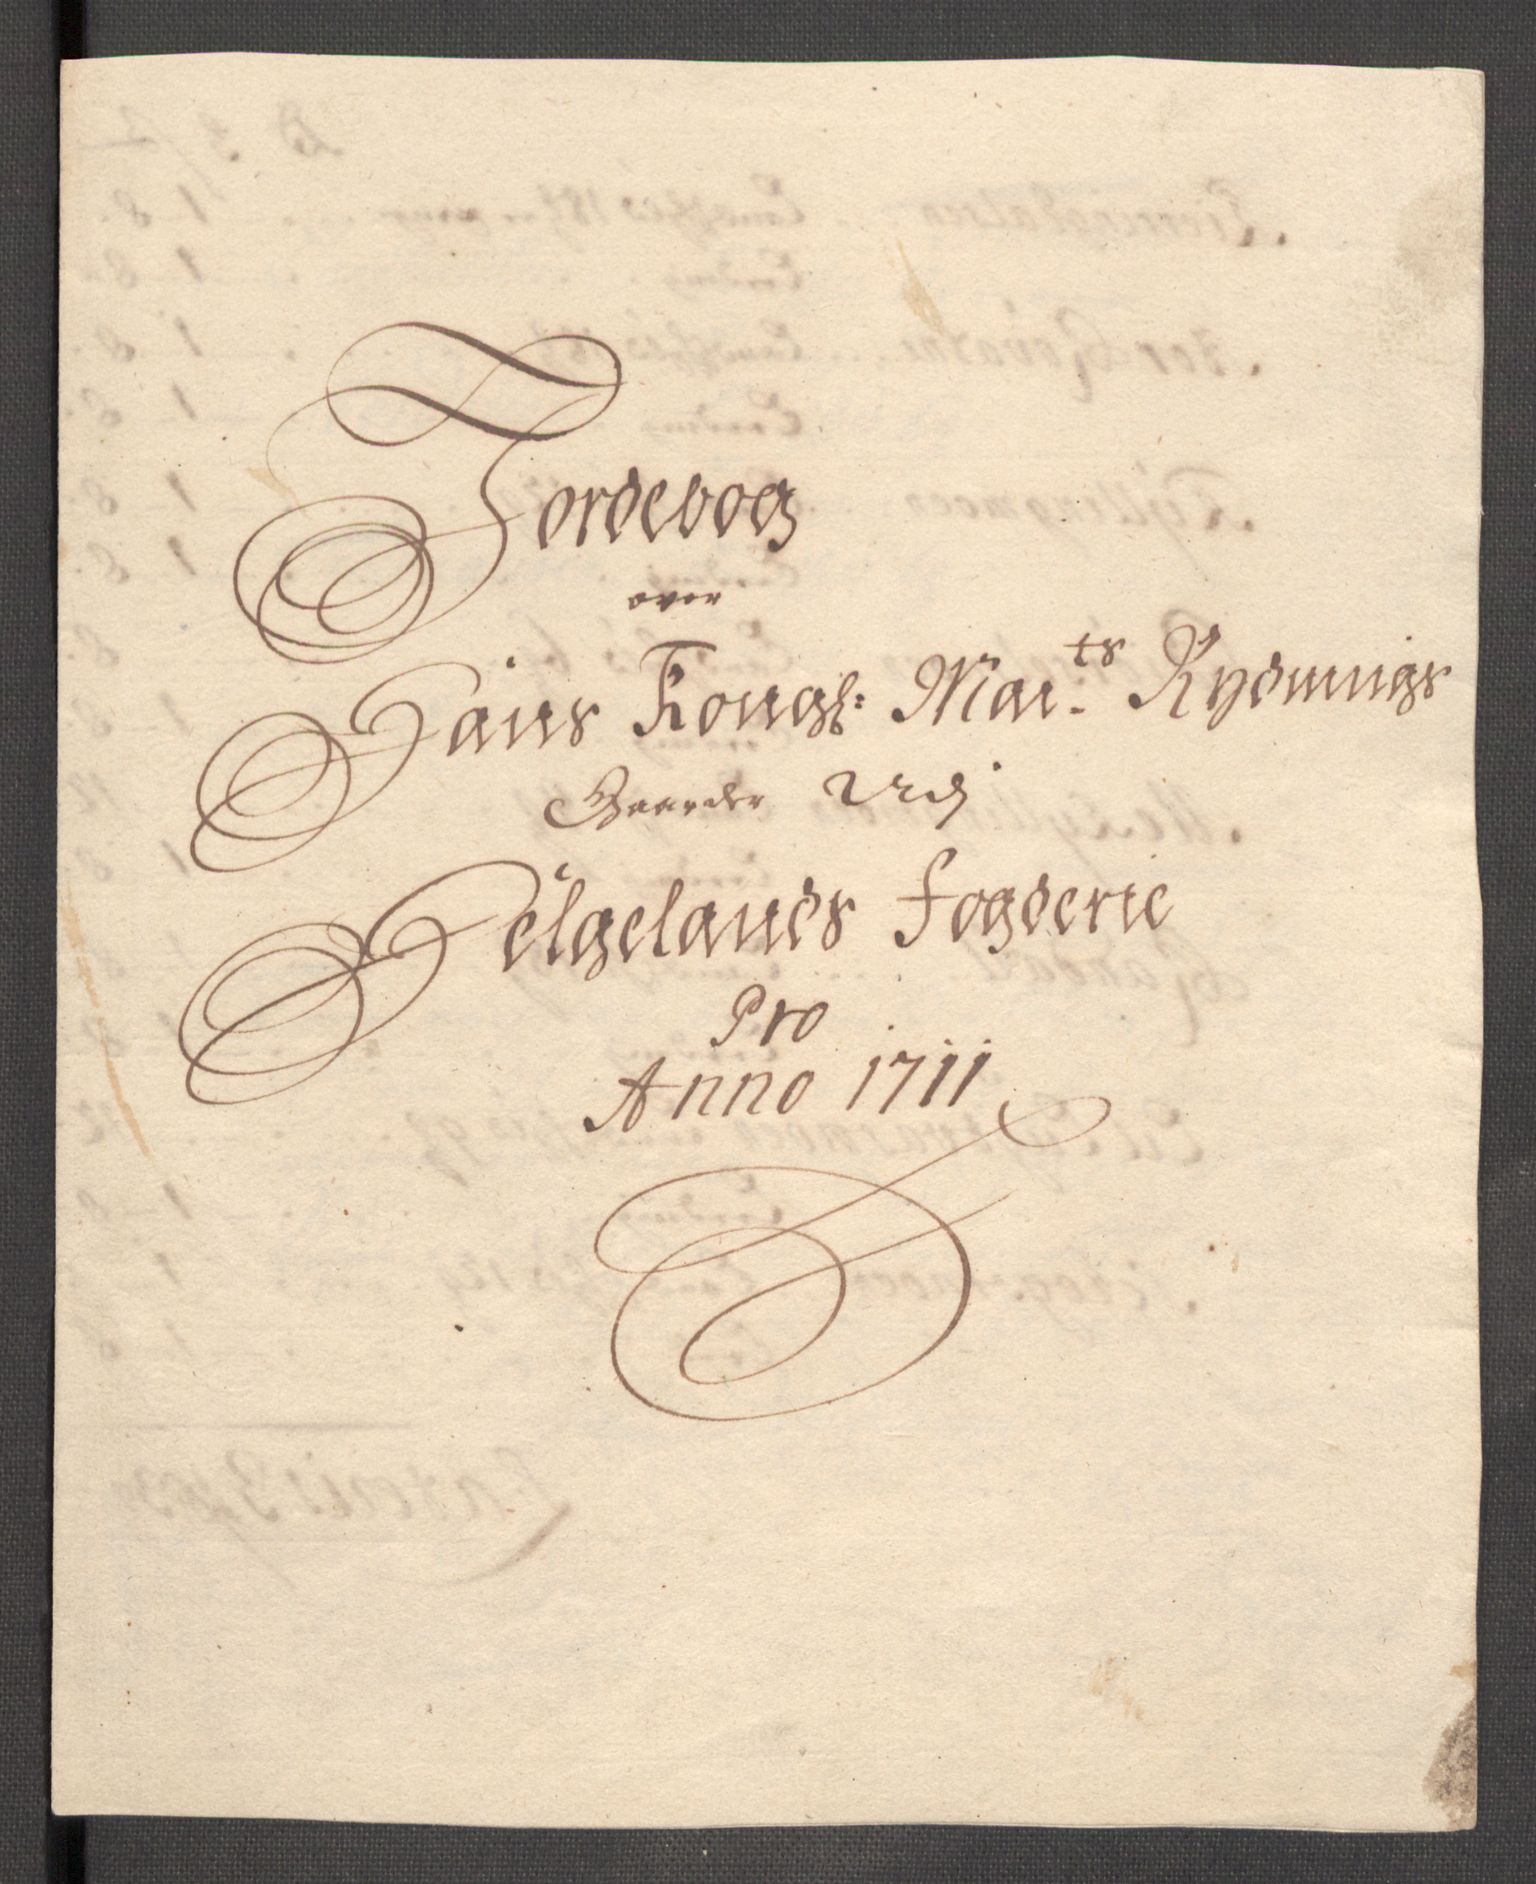 Jordebog
over
Hans Kongl: Mai.ts Rydnings
Gaarder Udj
Helgelands fogderie
Pro
Anno 1711